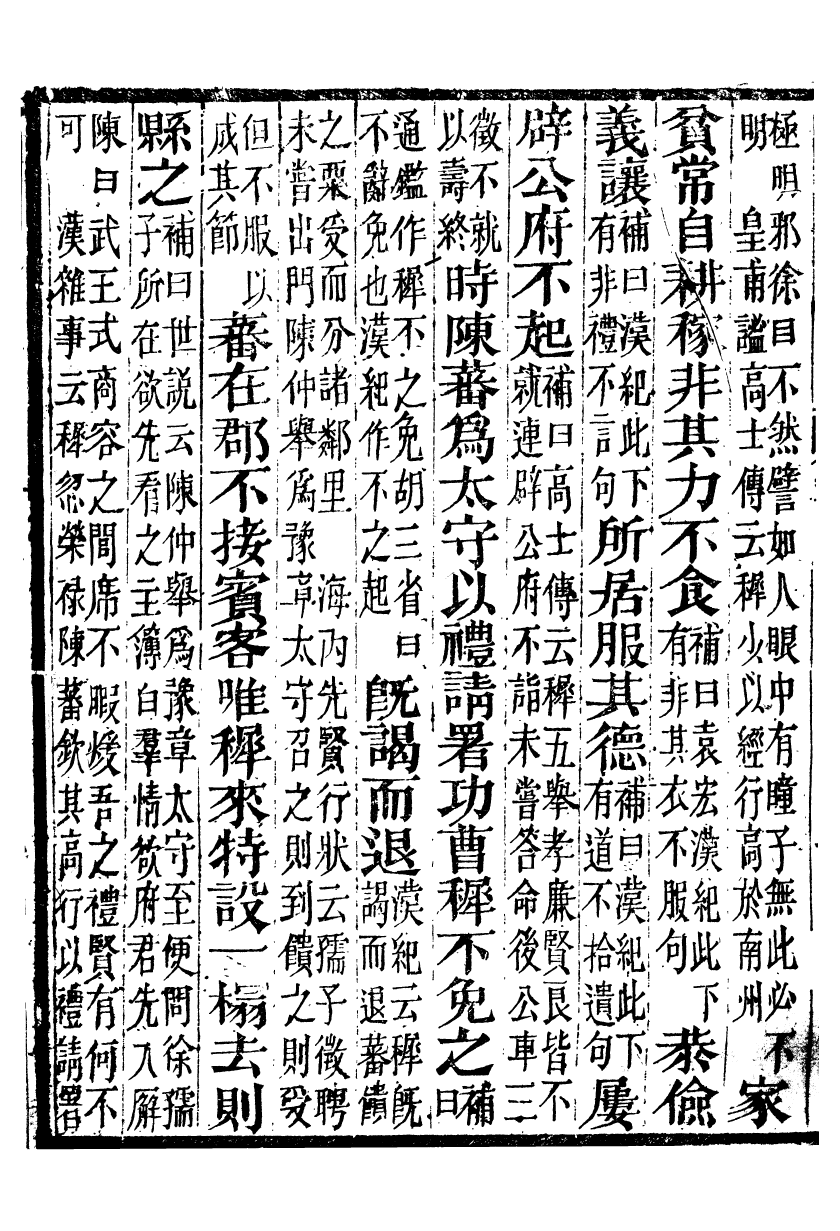 極明邪徐曰不然譬如人眼中有瞳子無此必不
明　皇甫謐高士傳云穉少以經行高於南州
家
貧常自耕稼非其力不食
補曰袁宏漢紀此下
有非其衣不服句
恭儉
義讓
補曰漢紀此下
有非禮不言句
所居服其德
補曰漢紀此下
有道不拾遺句
屢
辟公府不起
補曰高士傳云穉五舉孝廉賢良皆不
就連辟公府不詣未嘗答命後公車三
徵不就
以壽終
時陳蕃爲太守以禮請署功曹穉不免之
補
曰
通鑑作穉不之免胡三省曰
不辭免也漢紀作不之起
既謁而退
漢紀云穉既
謁而退蕃饋
之粟受而分諸鄰里　海內先賢行狀云孺子徵聘
未嘗出門陳仲舉爲豫章太守召之則到饋之則受
但不服以
成其節
蕃在郡不接賓客唯穉來特設一榻去則
縣之
補曰世說云陳仲舉爲豫章太守至便問徐孺
子所在欲先看之主簿白羣情欲府君先入廨
陳曰武王式商容之閭席不暇煖吾之禮賢有何不
可　漢雜事云穉忽榮祿陳蕃欽其高行以禮請署